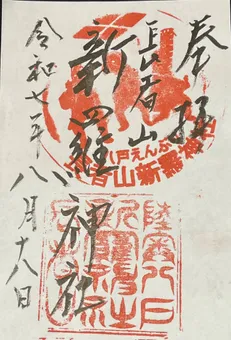 奉拝
長者山
新羅神社
令和七年八月十八日
八戸えんぶ
長者山新羅神社
陸奥八戸